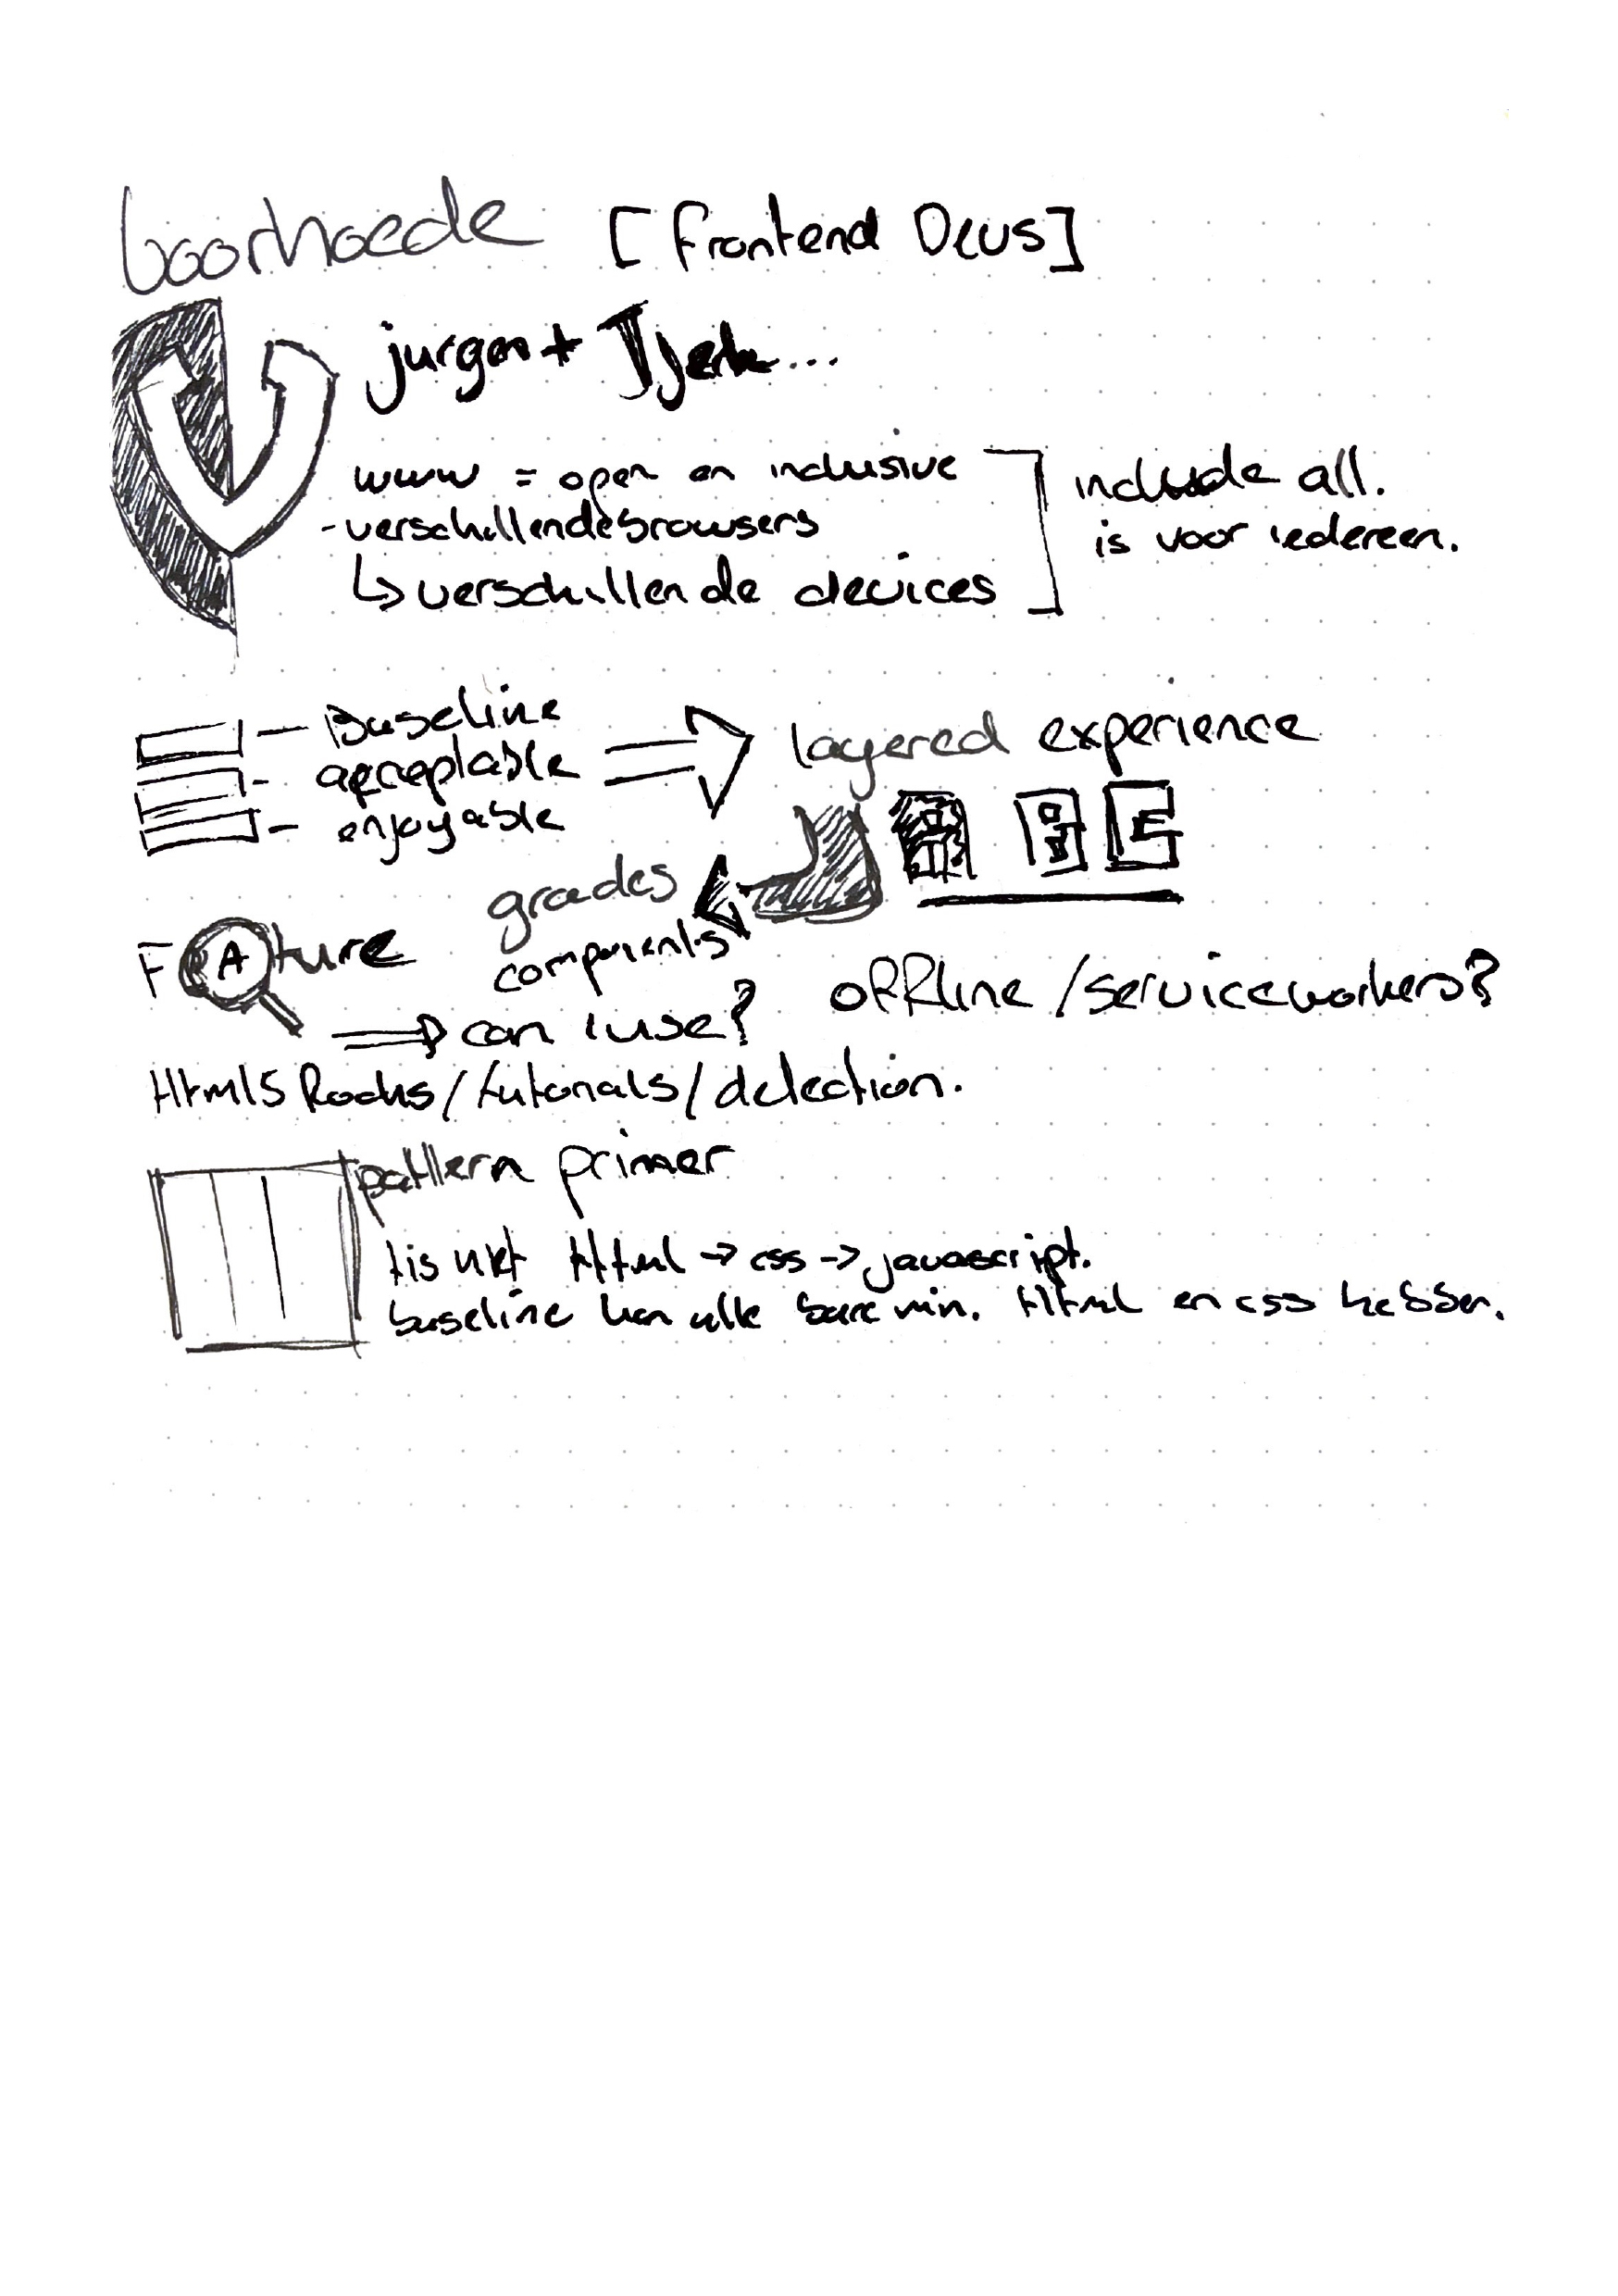 Voorhoede [Frontend Devs]
jurgen + Tjerk...
www = open en inclusive
- verschillende browsers
↳ verschillende devices
include all.
is voor iedereen.
- Baseline
- acceptable
- enjoyable
layered experience
grades
components
FEATURE
can i use?
offline / serviceworkers?
Html5 Rocks / tutorials / detection.
pattern primer
tis niet Html → css → javascript.
baseline kan alle bare min. Html en css hebben.